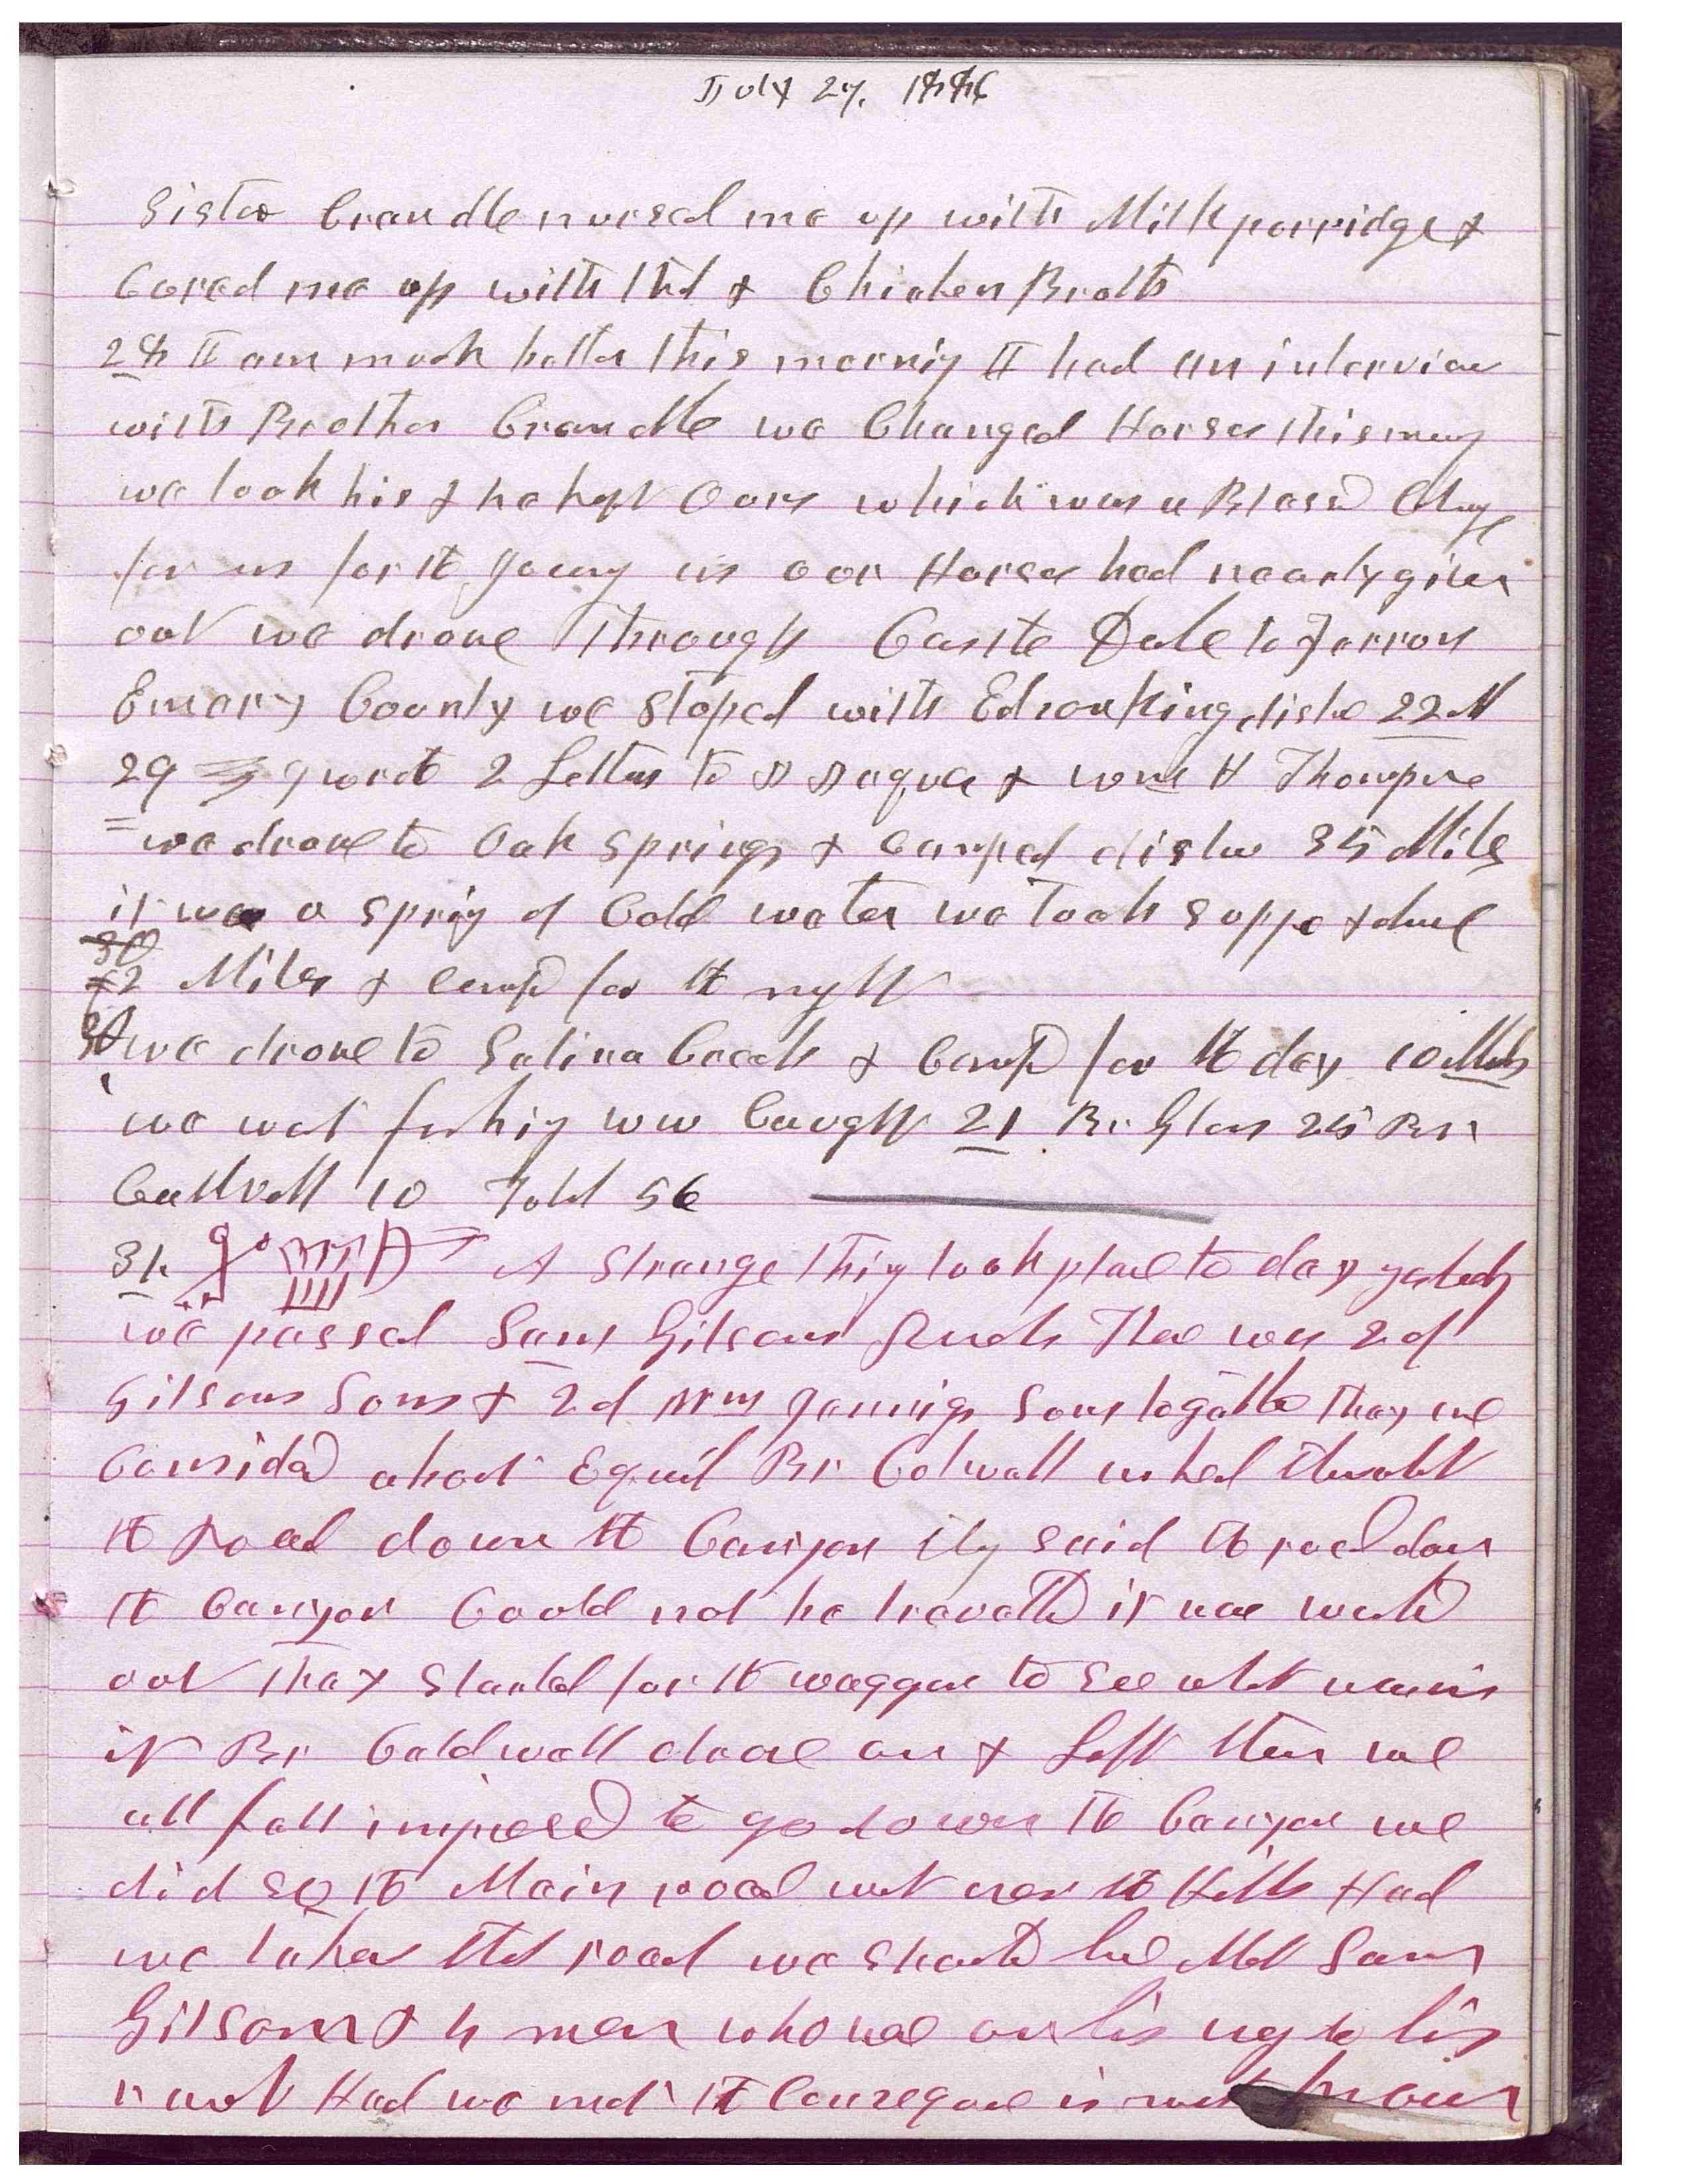 July 27, 1886
Sister Crandle nursed me up with Milk porridge &
Cured me up with that & Chicken Broth
28 I am much better this morning I had an interview
with Brother Crandle we Changed Horses this morng
we took his & he kept Ours which was a Blessd Chng
for us for the Jouny as our Horses had nearly given
out we drove Through Castle Dale to Ferron
Emery County we Stoped with Edson King distce 22 M
29 I wrote 2 Letters to & Wm H Thompson
we drove to Oak Springs & camped distan 35 Miles
it was a spring of Cold water we Took supper & drove
30
2 Miles & campd for the nght
we drove to Salina Creek & Campd for the day 10 Miles
we wet fishing WW Caught 21 Br Glen 25 Br
Caldwell 10 Totel 56
31. A Strange thing took place to day yesterdy
we passed Sam Gilsons Ranch Thare was 2 of
Gilsons Sons & 2 of Wm Jenings Sons togethe They we
Considd about Equil Br Colwell asked about
the road down the Canyon they said the road down
the Canyon Could not be traveld it was washd
out They Started for the waggon to see who was in
it Br Caldwell drove on & Left them we
all felt impressd to go down the Canyon we
did so the Main road wet over the Hills Had
we taken that road we should have Met Sam
Gilson & 4 men who was on his way to his
ranch Had we met the Consequence is not known